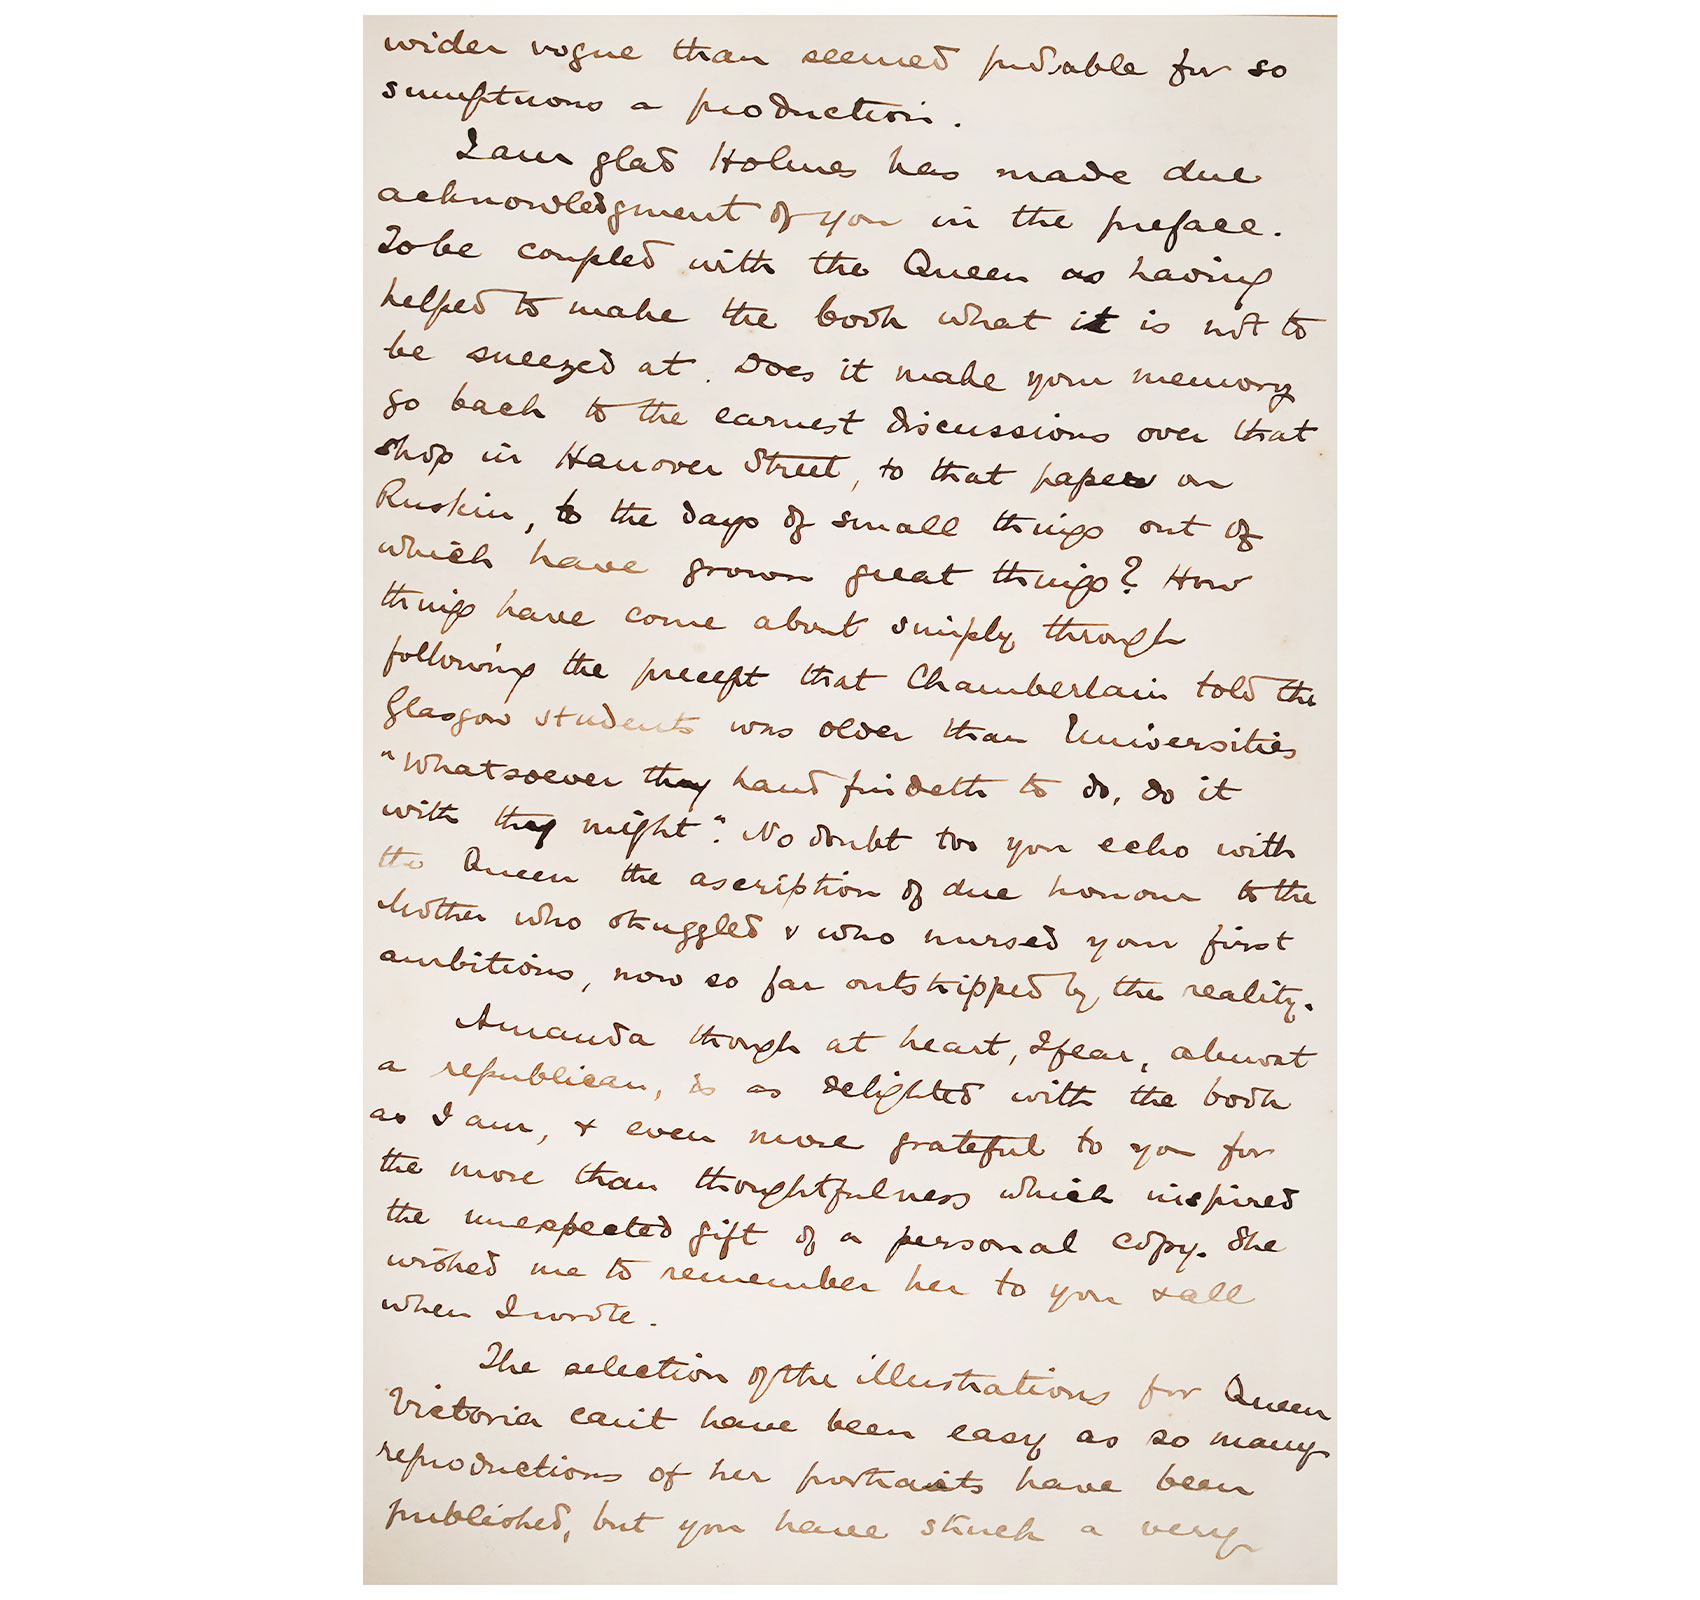 wider vogue than seemed probable for so
sumptuous a production.
I am glad Holmes has made due
acknowledgment of you in the preface.
To be coupled with the Queen as having
helped to make the book what it is not to
be sneezed at. Does it make your memory
go back to the earnest discussions over that
shop in Hanover Street, to that paper on
Ruskin, to the days of small things out of
which have grown great things? How
things have come about simply through
following the precept that Chamberlain told the
Glasgow students was older than Universities
"Whatsoever thy hand findeth to do, do it
with thy might". No doubt too you echo with
the Queen the ascription of due honour to the
Mother who struggled & who nursed your first
ambitions, now so far outstripped by the reality.
Amanda though at heart, I fear, almost
a republican, is as delighted with the book
as I am, & even more grateful to you for
the more than thoughtfulness which inspired
the unexpected gift of a personal copy. She
wished me to remember her to you & all
when I wrote.
The selection of the illustrations for Queen
Victoria can't have been easy as so many
reproductions of her portraits have been
published, but you have struck a very